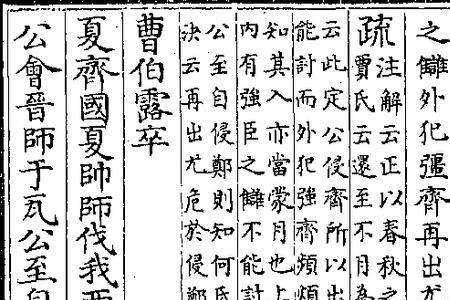 之讎外犯彊齊再出尤
疏
注解云正以春秋之
賈氏云還至不月為
云此定公侵齊所以出
能討而外犯強齊頻煩
知其入亦當蒙月也上
内有強臣之讎不能討
公至自侵鄭則知何氏
決云再出尤危於侵鄭
曹伯露卒
夏齊國夏帥師伐我西
公會晉師于瓦公至自